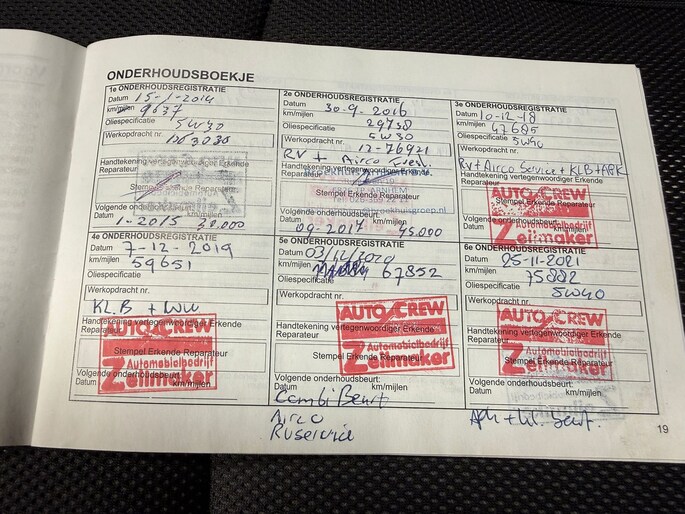 ONDERHOUDSBOEKJE
1e ONDERHOUDSREGISTRATIE
Datum 15-1-2014
km/mijlen 9637
Oliespecificatie 5W30
Werkopdracht nr.
Handtekening vertegenwoordiger Erkende
Reparateur
Stempel Erkende Reparateur
Volgende onderhoudsbeurt:
Datum km/mijlen
1-2015 38.000
2e ONDERHOUDSREGISTRATIE
Datum 30-9-2016
km/mijlen 29758
Oliespecificatie 5W30
Werkopdracht nr. 12-76921
RV + Airco
Handtekening vertegenwoordiger Erkende
Reparateur
Stempel Erkende Reparateur
Volgende onderhoudsbeurt:
Datum km/mijlen
09-2017 45.000
3e ONDERHOUDSREGISTRATIE
Datum 10-12-18
km/mijlen 47685
Oliespecificatie 5W40
Werkopdracht nr.
RV+Airco Service+KLB+APK
Handtekening vertegenwoordiger Erkende
Reparateur
AUTO CREW
Stempel Erkende Reparateur
Automobielbedrijf
Zeilmaker
Volgende onderhoudsbeurt:
Datum km/mijlen
4e ONDERHOUDSREGISTRATIE
Datum 7-12-2019
km/mijlen 59651
Oliespecificatie
Werkopdracht nr.
KLB + WW
Handtekening vertegenwoordiger Erkende
Reparateur
AUTO CREW
Stempel Erkende Reparateur
Automobielbedrijf
Zeilmaker
Volgende onderhoudsbeurt:
Datum km/mijlen
5e ONDERHOUDSREGISTRATIE
Datum 03/12/2020
km/mijlen 67852
Oliespecificatie
Werkopdracht nr.
Handtekening vertegenwoordiger Erkende
Reparateur
AUTO CREW
Stempel Erkende Reparateur
Automobielbedrijf
Zeilmaker
Volgende onderhoudsbeurt:
Datum km/mijlen
Combi Beurt
Airco
6e ONDERHOUDSREGISTRATIE
Datum 25-11-2021
km/mijlen 75882
Oliespecificatie 5W40
Werkopdracht nr.
Handtekening vertegenwoordiger Erkende
Reparateur
AUTO CREW
Stempel Erkende Reparateur
Automobielbedrijf
Zeilmaker
Volgende onderhoudsbeurt:
Datum km/mijlen
19